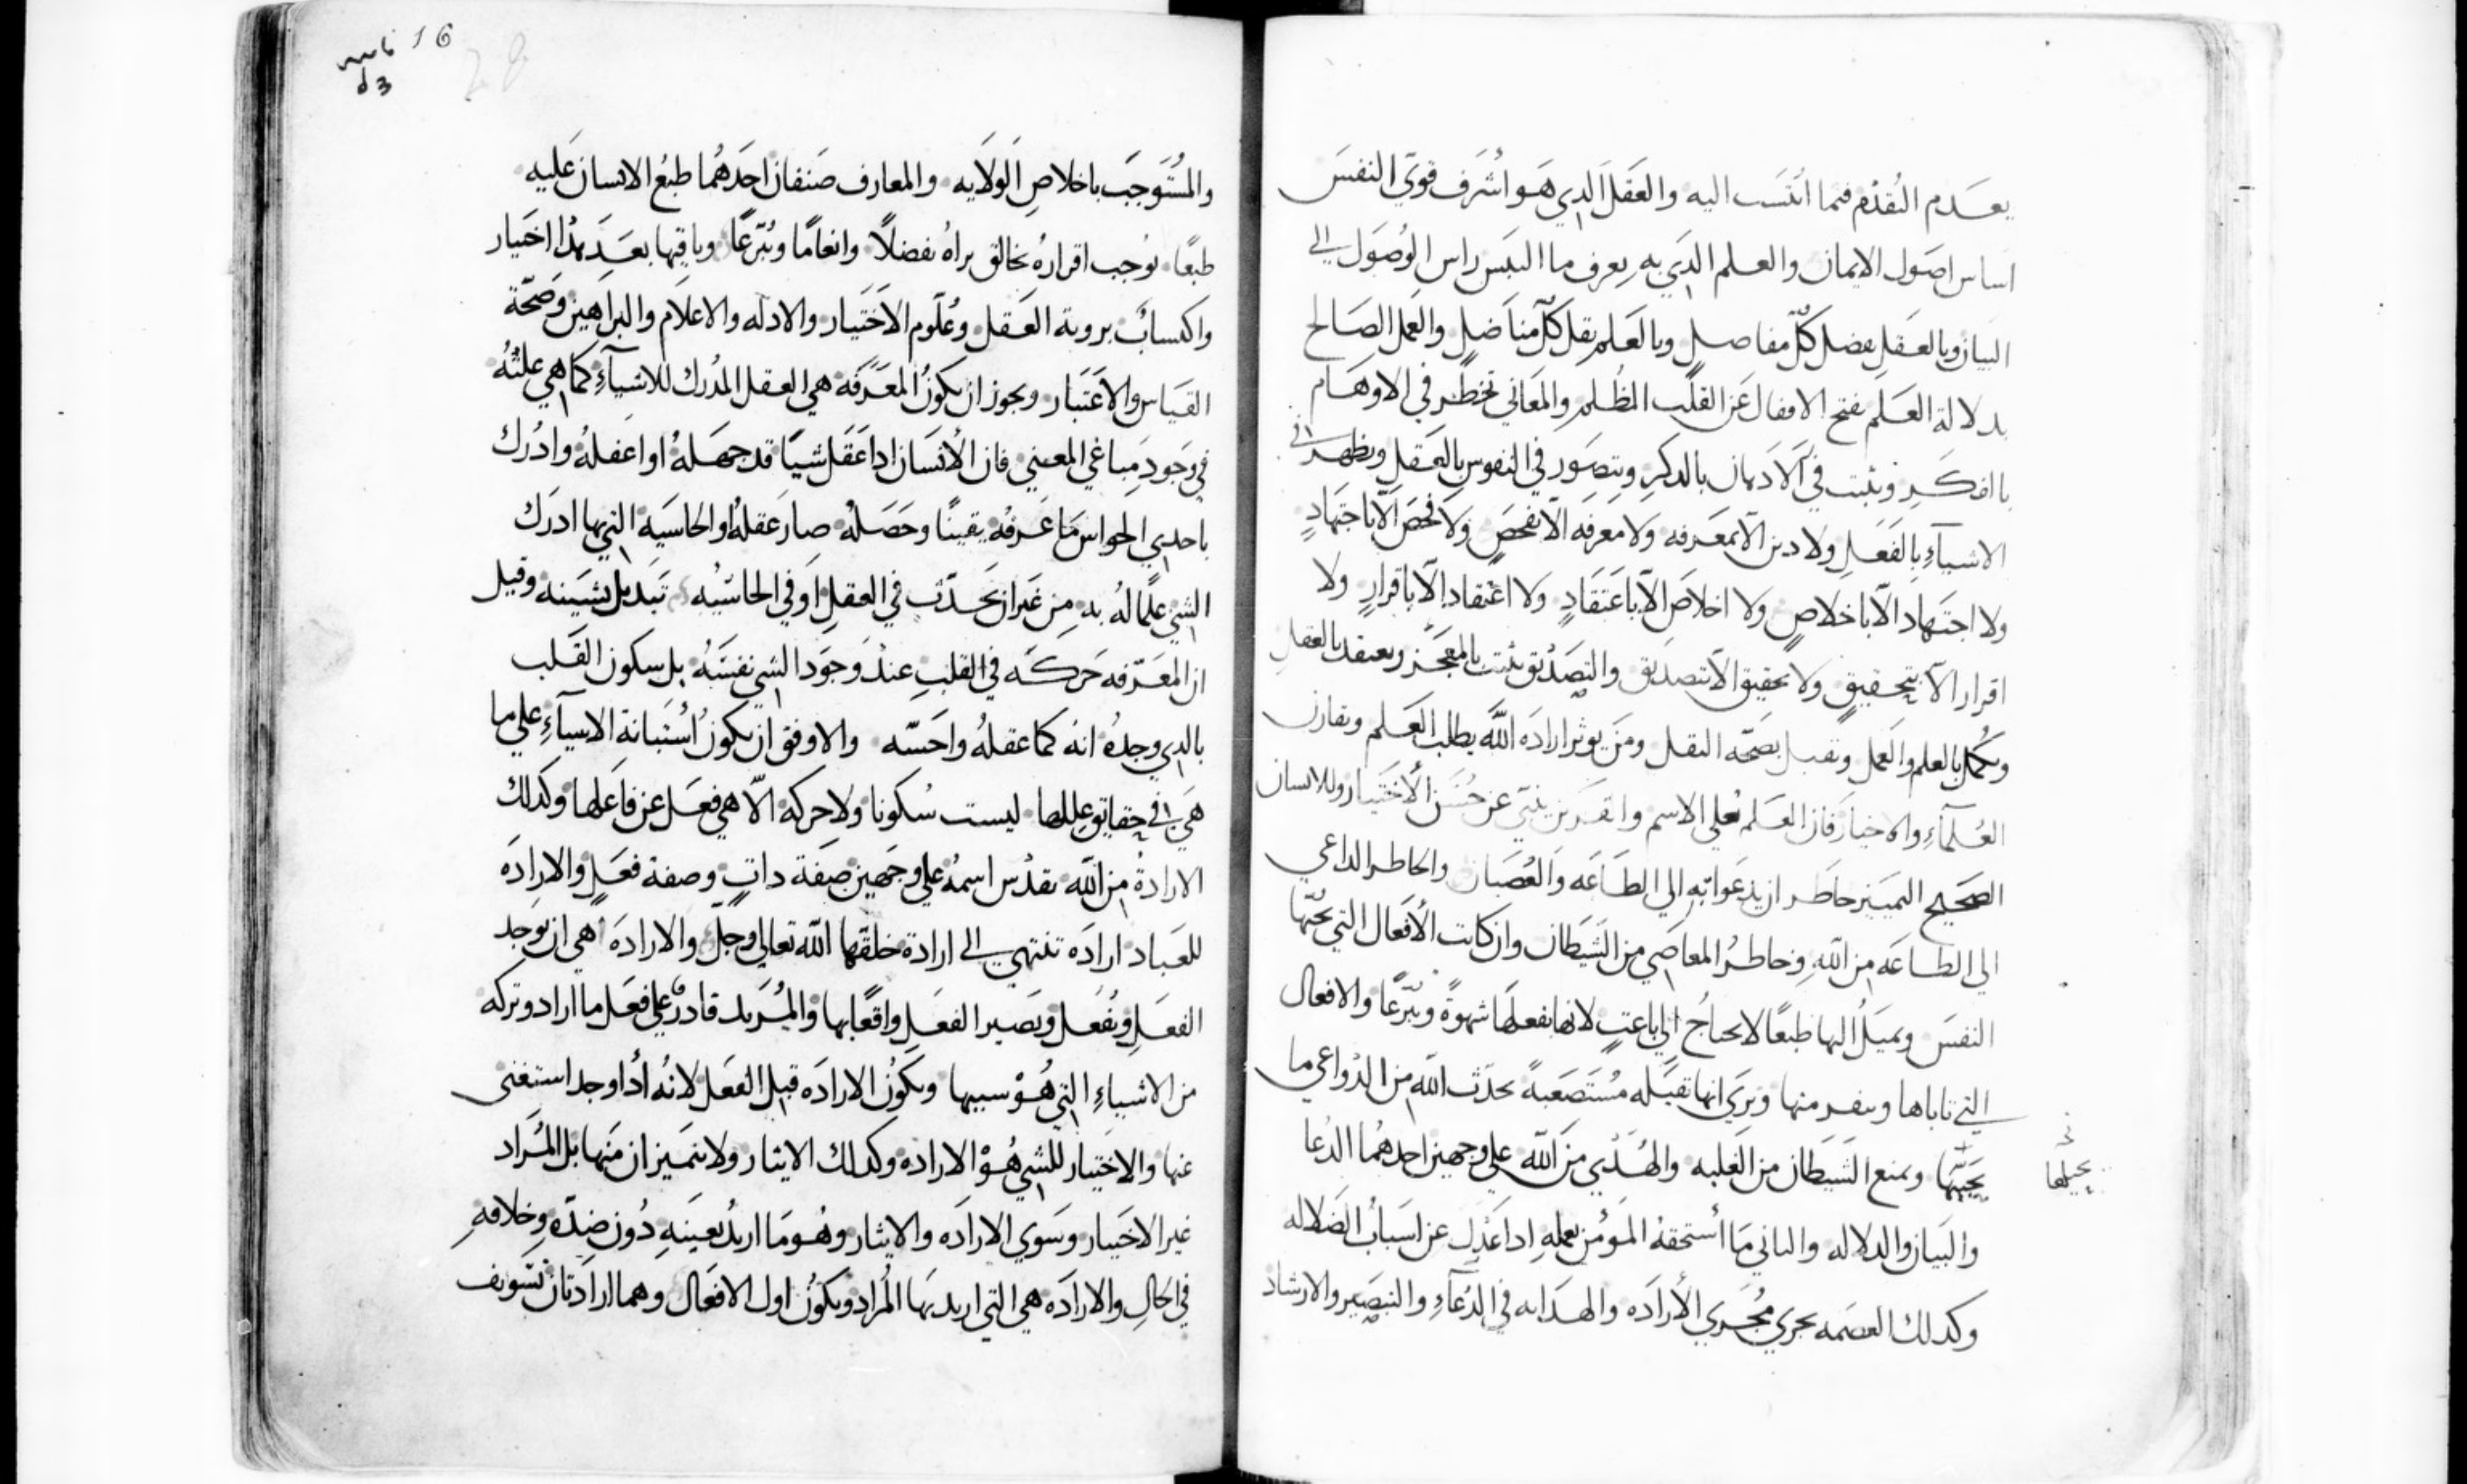 يعدم التقدم فيما انتسب اليه والعقل الدي هو اشرف قوي النفس
اساس اصول الايمان والعلم الدي به يعرف ما التبس راس الوصول الي
البيان وبالعقل يفضل كل مفاصل وبالعلم يقل كل مناضل والعمل الصالح
بدلالة العلم يفتح الاقفال عن القلب المظلم والمعاني تخطر في الاوهام
باالفكر وتثبت في الادهان بالدكر وتتصور في النفوس بالعقل وتظهر في
الاشياء بالفعل ولا دين الا بمعرفه ولا معرفه الا بفحص ولا فحص الا باجتهاد
ولا اجتهاد الا باخلاص ولا اخلاص الا باعتقاد ولا اعتقاد الا باقرار ولا
اقرار الا بتحقيق ولا تحقيق الا بتصديق والتصديق يثبت بالمعجز ويعتقد بالعقل
ويكمل بالعلم والعمل وتقبل بصحه النقل ومن يوثر اراده الله يطلب العلم ويقارن
العلماء والاخيار فان العلم يعلي الاسم والقرين ينبي عن حسن الاختيار وللانسان
الصحيح التمييز خاطران يدعوانه الي الطاعه والعصيان والخاطر الداعي
الي الطاعه من الله وخاطر المعاصي من الشيطان وان كانت الافعال التي تحبها
النفس وتميل اليها طبعا لا تحتاج الي باعث لانها تفعلها شهوة وتبرعا والافعال
التي تاباها وتنفر منها وتري انها ثقيله مستصعبة يحدث الله من الدواعي ما
يحببها ويمنع الشيطان من الغلبه والهدي من الله علي وجهين احدهما الدعا
يحيلها
والبيان والدلاله والثاني ما استحقه المومن بعمله ادا عدل عن اسباب الضلاله
وكدلك العصمه يجري مجري الاراده والهدايه في الدعاء والتبصير والارشاد
16
والمستوجب باخلاص الولايه والمعارف صنفان احدهما طبع الانسان عليه
طبعا توجب اقراره بخالق براه تفضلا وانعاما وتبرعا وباقيها بعد هدا اختيار
واكتساب بروية العقل وعلوم الاختيار والادله والاعلام والبراهين وصحة
القياس والاعتبار ويجوز ان يكون المعرفه هي العقل المدرك للاشياء كما هي علته
في وجود مباغي المعني فان الانسان ادا عقل شيا قد جهله او اغفله وادرك
باحدي الحواس ما عرفه يقينا وحصله صار عقله او الحاسيه التي بها ادرك
الشي علما له به من غير ان يحدث في العقل او في الحاسيه تبديل بشينه وقيل
ان المعرفه حركه في القلب عند وجود الشي نفسه بل سكون القلب
بالدي وجده انه كما عقله واحسه والاوفق ان يكون استبانة الاشياء علي ما
هي في حقايق عللها ليست سكونا ولا حركة الا هي فعل عن فاعلها وكدلك
الارادة من الله تقدس اسمه علي وجهين صفة دات وصفة فعل والاراده
للعباد اراده تنتهي الي ارادة خلقها الله تعالي وجل والاراده هي ان توجد
الفعل وتفعل ويصير الفعل واقعا بها والمريد قادر علي فعل ما اراد وتركه
من الاشياء التي هو سببها ويكون الاراده قبل الفعل لانه ادا وجد استغنى
عنها والاختيار للشي هو الاراده وكدلك الايثار ولا يتميزان منها بل المراد
غير الاختيار وسوي الاراده والايثار وهو ما اريد بعينه دون ضده وخلافه
في الحال والاراده هي التي اريد بها المراد ويكون اول الافعال وهما ارادتان تسويف